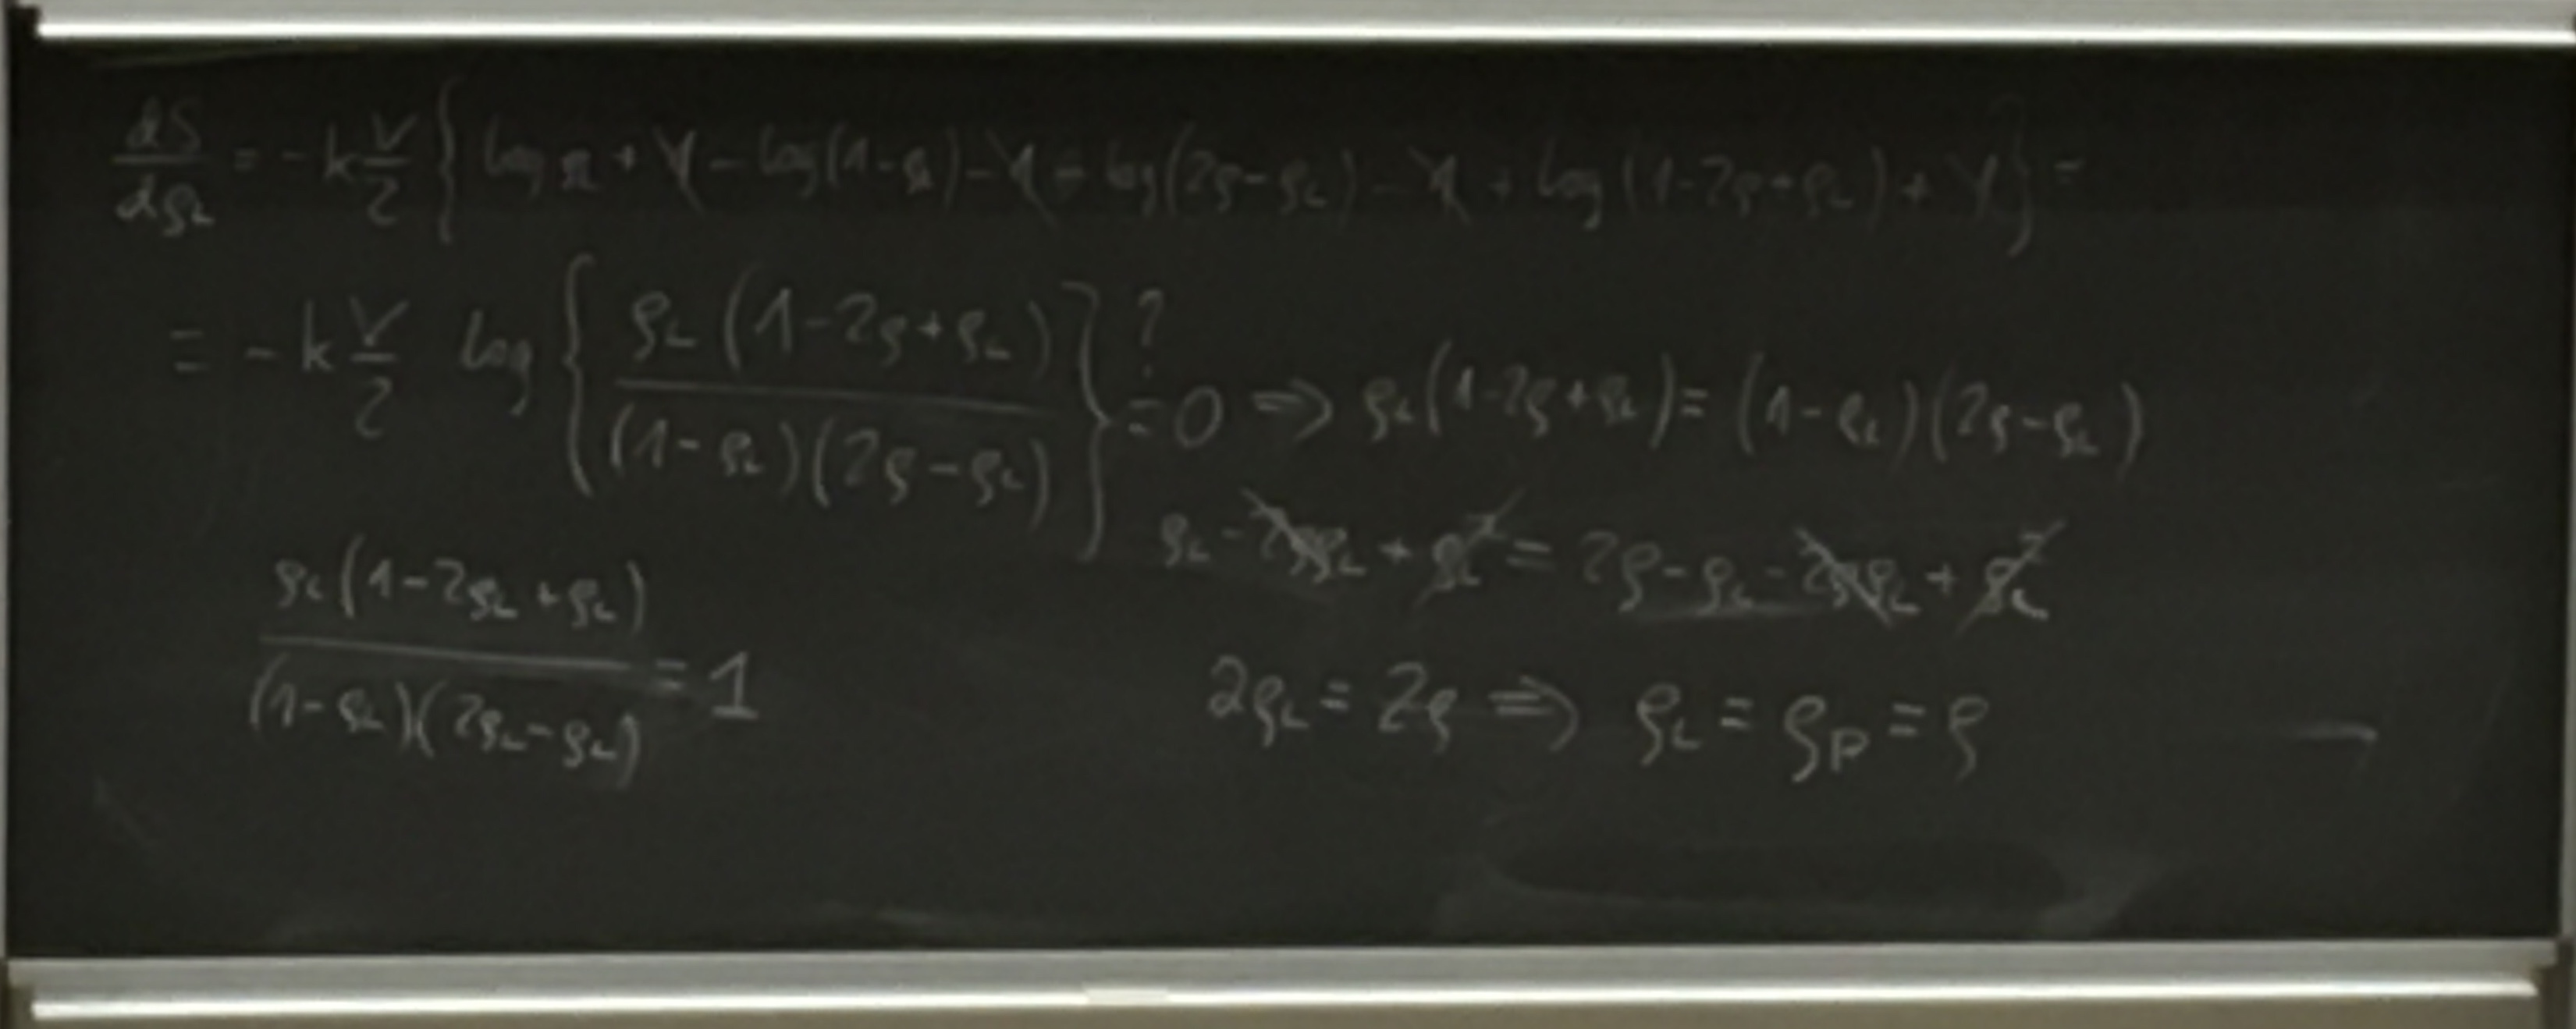 dS/dρ_L = -k V/2 { log ρ_L + 1 - log(1-ρ_L) - 1 - log(2ρ-ρ_L) - 1 + log(1-2ρ+ρ_L) + 1 } =
= -k V/2 log { ρ_L (1-2ρ+ρ_L) / (1-ρ_L)(2ρ-ρ_L) } ?= 0 ⇒ ρ_L(1-2ρ+ρ_L) = (1-ρ_L)(2ρ-ρ_L)
ρ_L - 2ρρ_L + ρ_L² = 2ρ - ρ_L - 2ρρ_L + ρ_L²
ρ_L(1-2ρ_L+ρ_L) / (1-ρ_L)(2ρ_L-ρ_L) = 1
2ρ_L = 2ρ ⇒ ρ_L = ρ_P = ρ